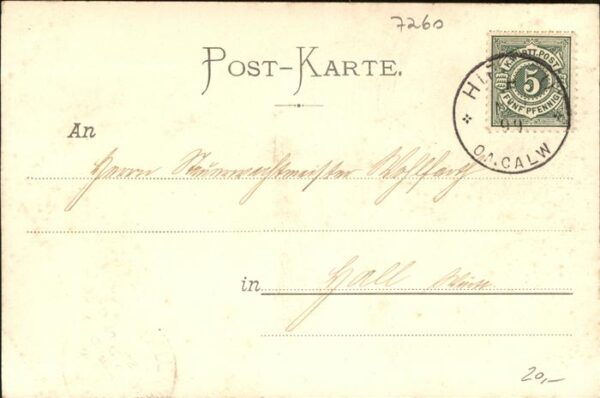 7260
POST-KARTE.
K. WÜRTT. POST
5
FÜNF PFENNIG
HI
99
O.A. CALW
An
Herrn Steuerwachtmeister Wohlfarth
in Hall Württ.
20,-